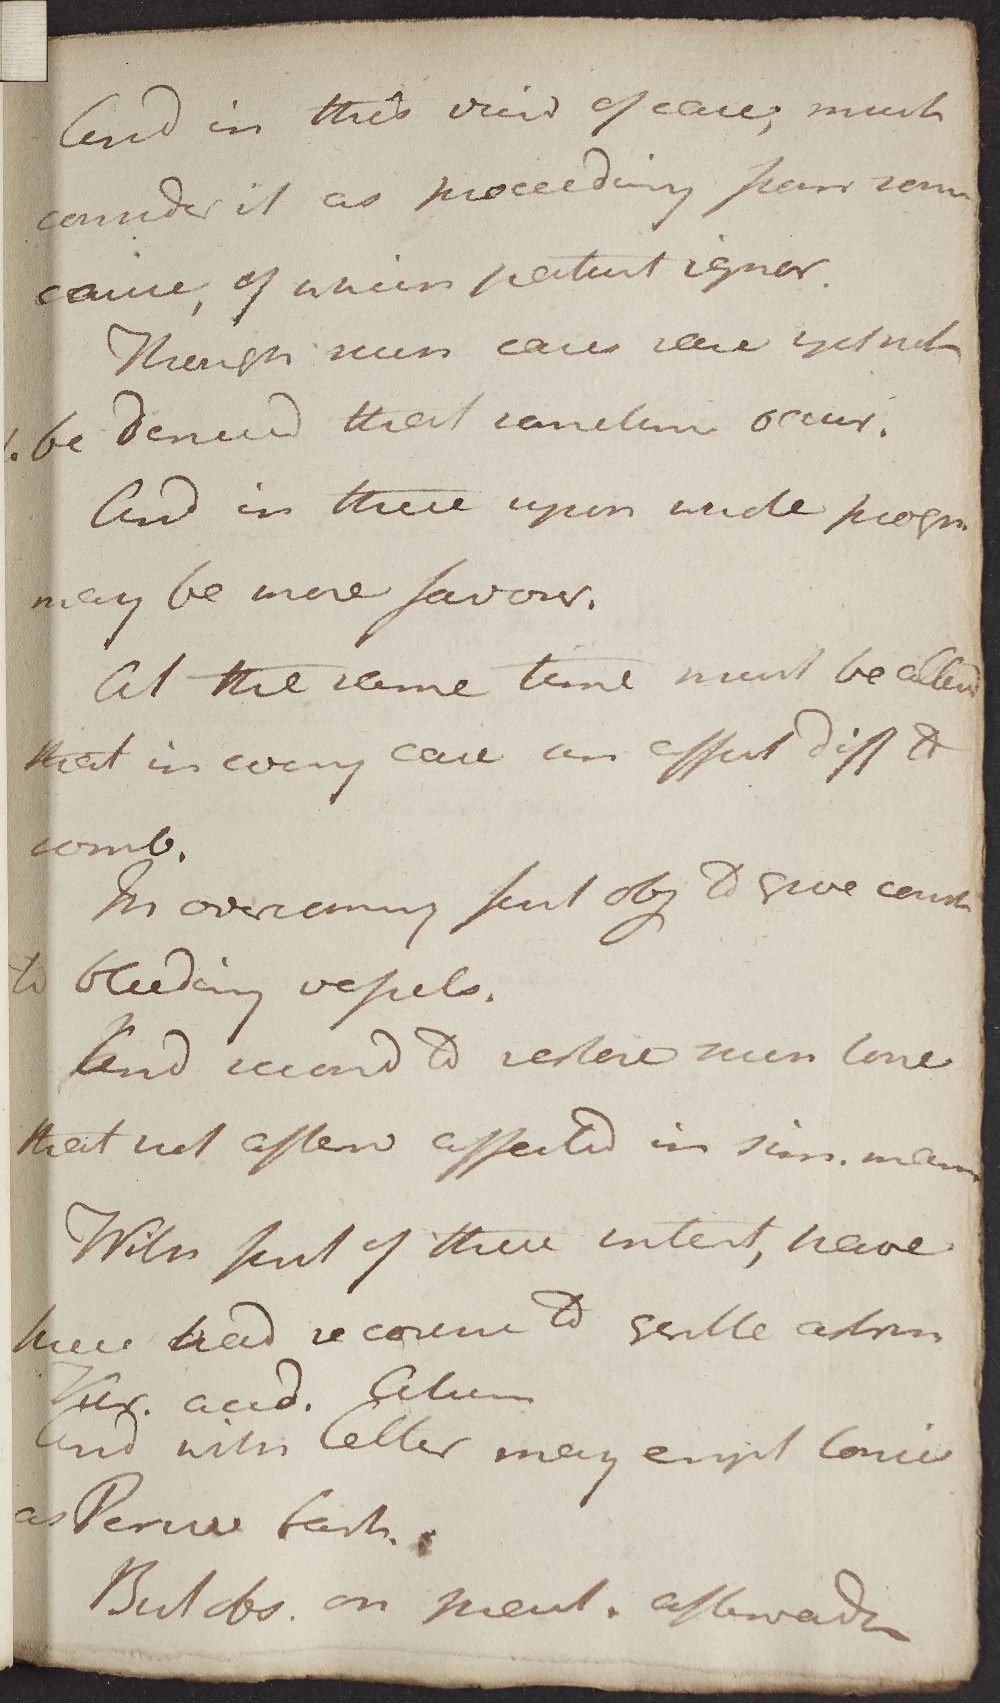 And in this view of case, must
consider it as proceeding from some
cause, of which patient ignor.
Though such cases rare yet not
be denied that sometim occur.
And in these upon whole progn
may be more favour.
At the same time must be allow
that in every case an affect diff to
comb.
In overcoming first obj to give const
to bleeding vessels.
And second to restore such tone
that not afterw affected in sim. mann
With first of these intent, have
here had recourse to gentle astrin
acid. Alum
And with latter may empl tonics
as Peruv bark.
But obs. on treat. afterwards